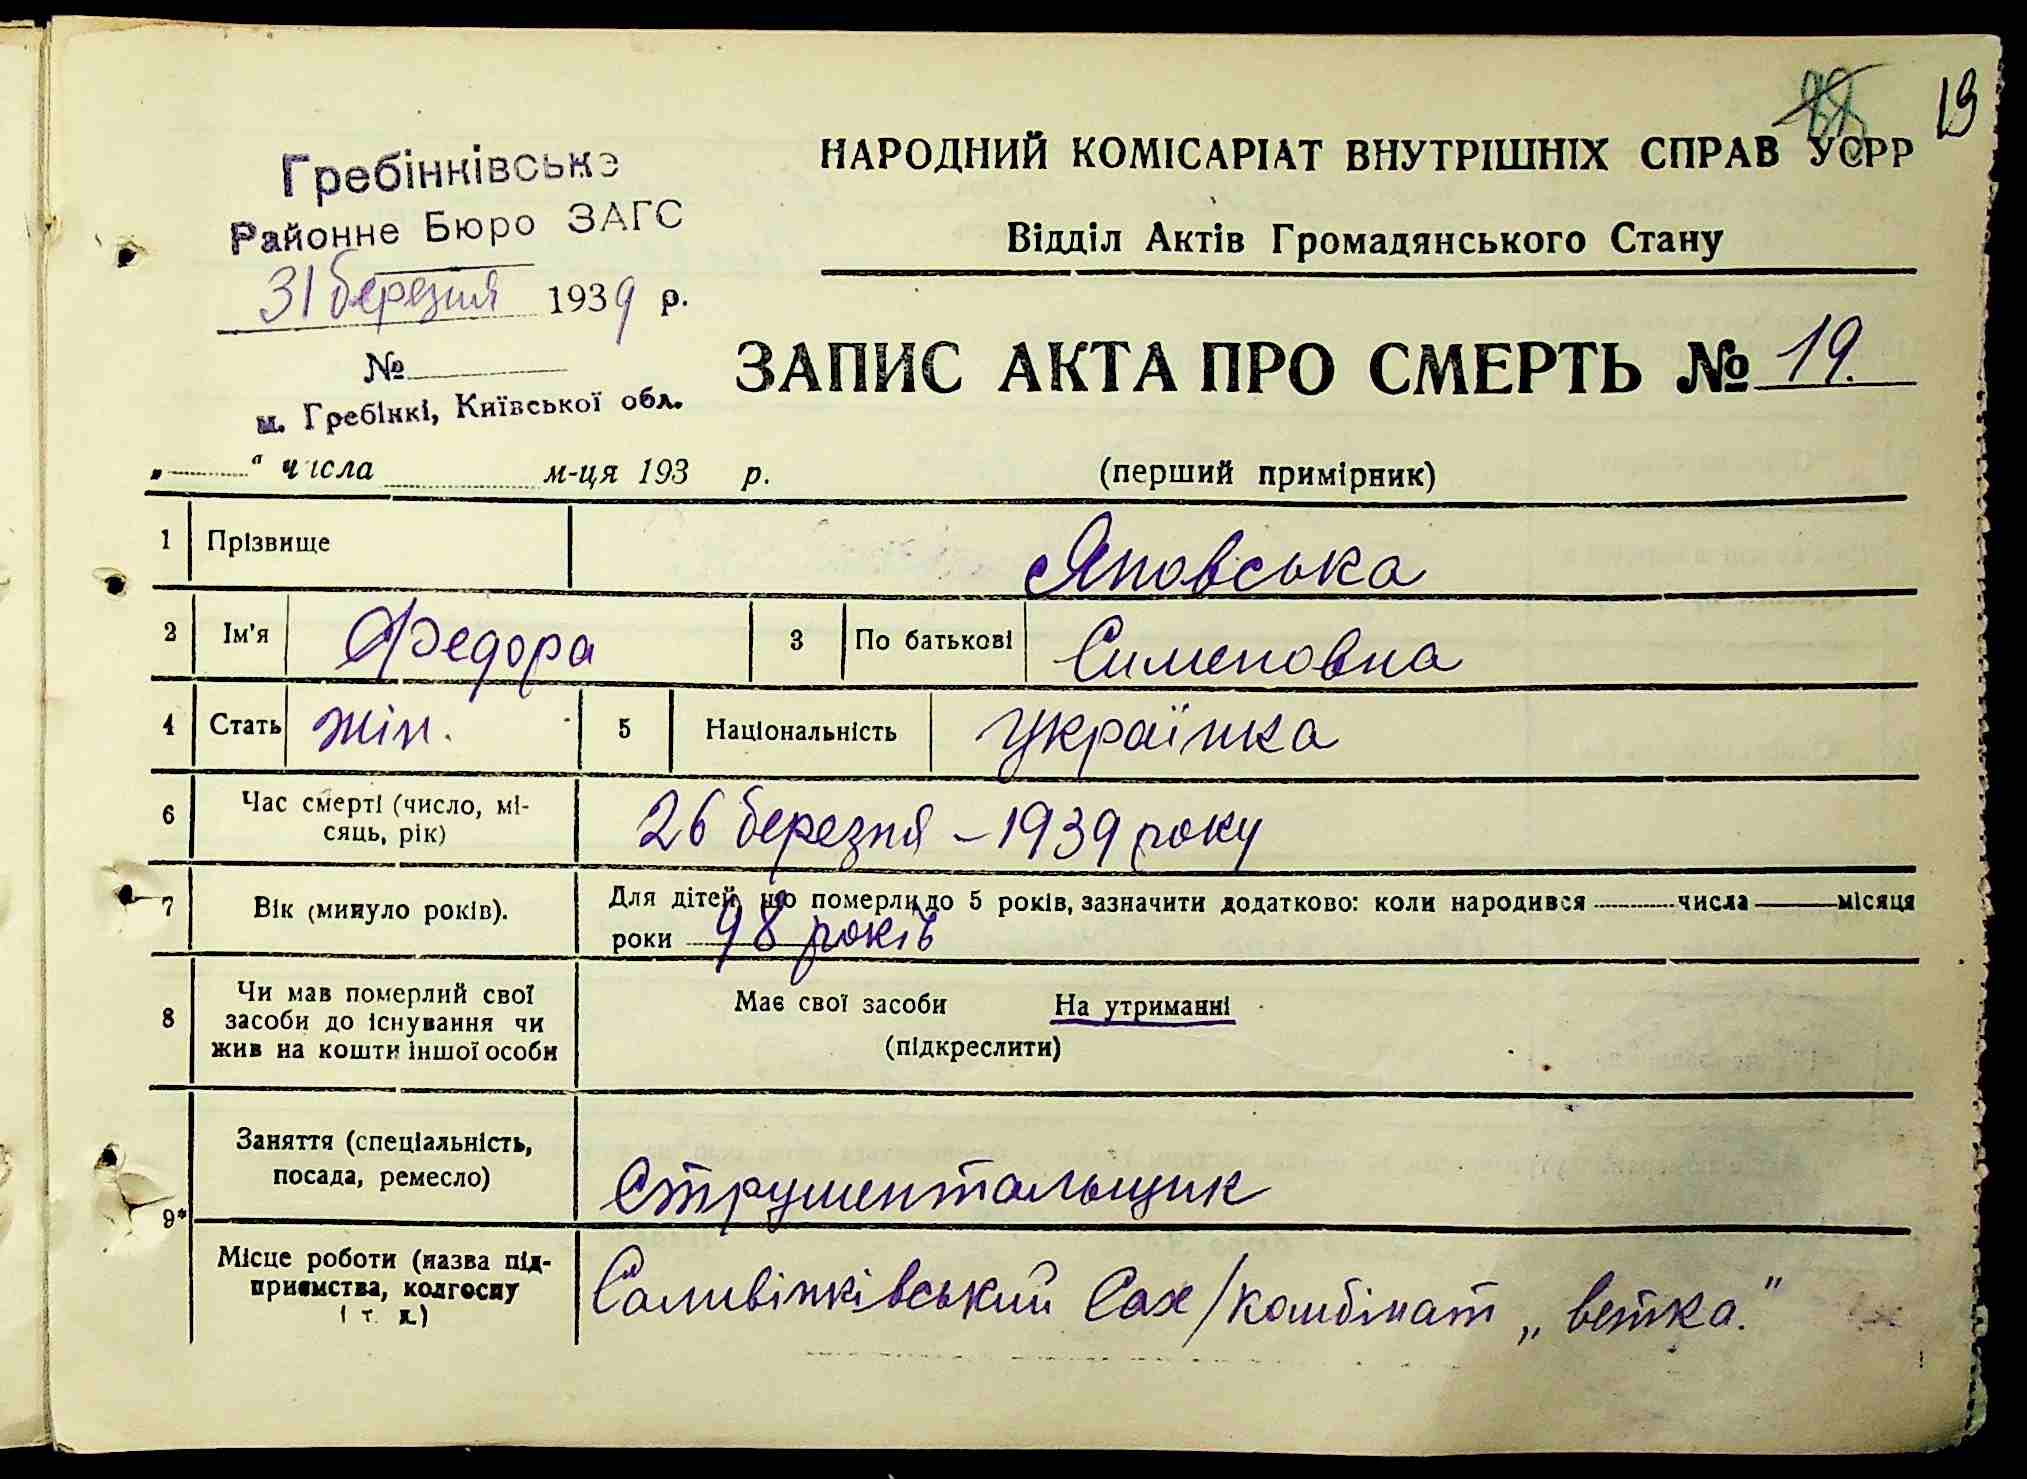 19
Гребінківське
Районне Бюро ЗАГС
31 березня 1939 р.
№
м. Гребінкі, Київської обл.
НАРОДНИЙ КОМІСАРІАТ ВНУТРІШНІХ СПРАВ УСРР
Відділ Актів Громадянського Стану
ЗАПИС АКТА ПРО СМЕРТЬ № 19.
„ “ числа м-ця 193 р.
(перший примірник)
1 Прізвище Яновська
2 Ім'я Федора 3 По батькові Сименовна
4 Стать жін. 5 Національність Українка
6 Час смерті (число, мі-
сяць, рік) 26 березня – 1939 року
7 Вік (минуло років). Для дітей, що померли до 5 років, зазначити додатково: коли народився числа місяця
роки 98 років
8 Чи мав померлий свої
засоби до існування чи
жив на кошти іншої особи
Має свої засоби На утриманні
(підкреслити)
9* Заняття (спеціальність,
посада, ремесло) Струментальщик
Місце роботи (назва під-
приємства, колгоспу
і т. д.) Саливінківський Сах/комбінат „ветка."